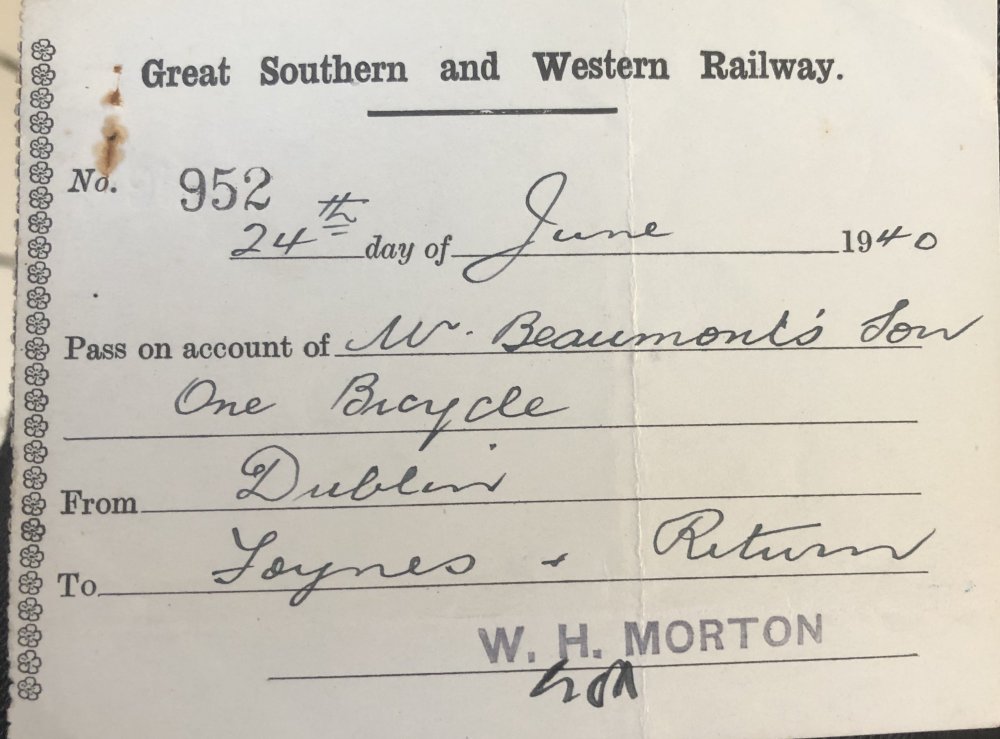 Great Southern and Western Railway.
No. 952
24th day of June 1940
Pass on account of Mr. Beaumont's Son
One Bicycle
From Dublin
To Foynes & Return
W. H. MORTON